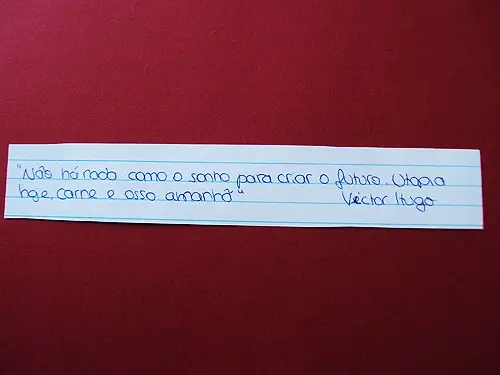 "Não há nada como o sonho para criar o futuro. Utopia
hoje, carne e osso amanhã"
Victor Hugo